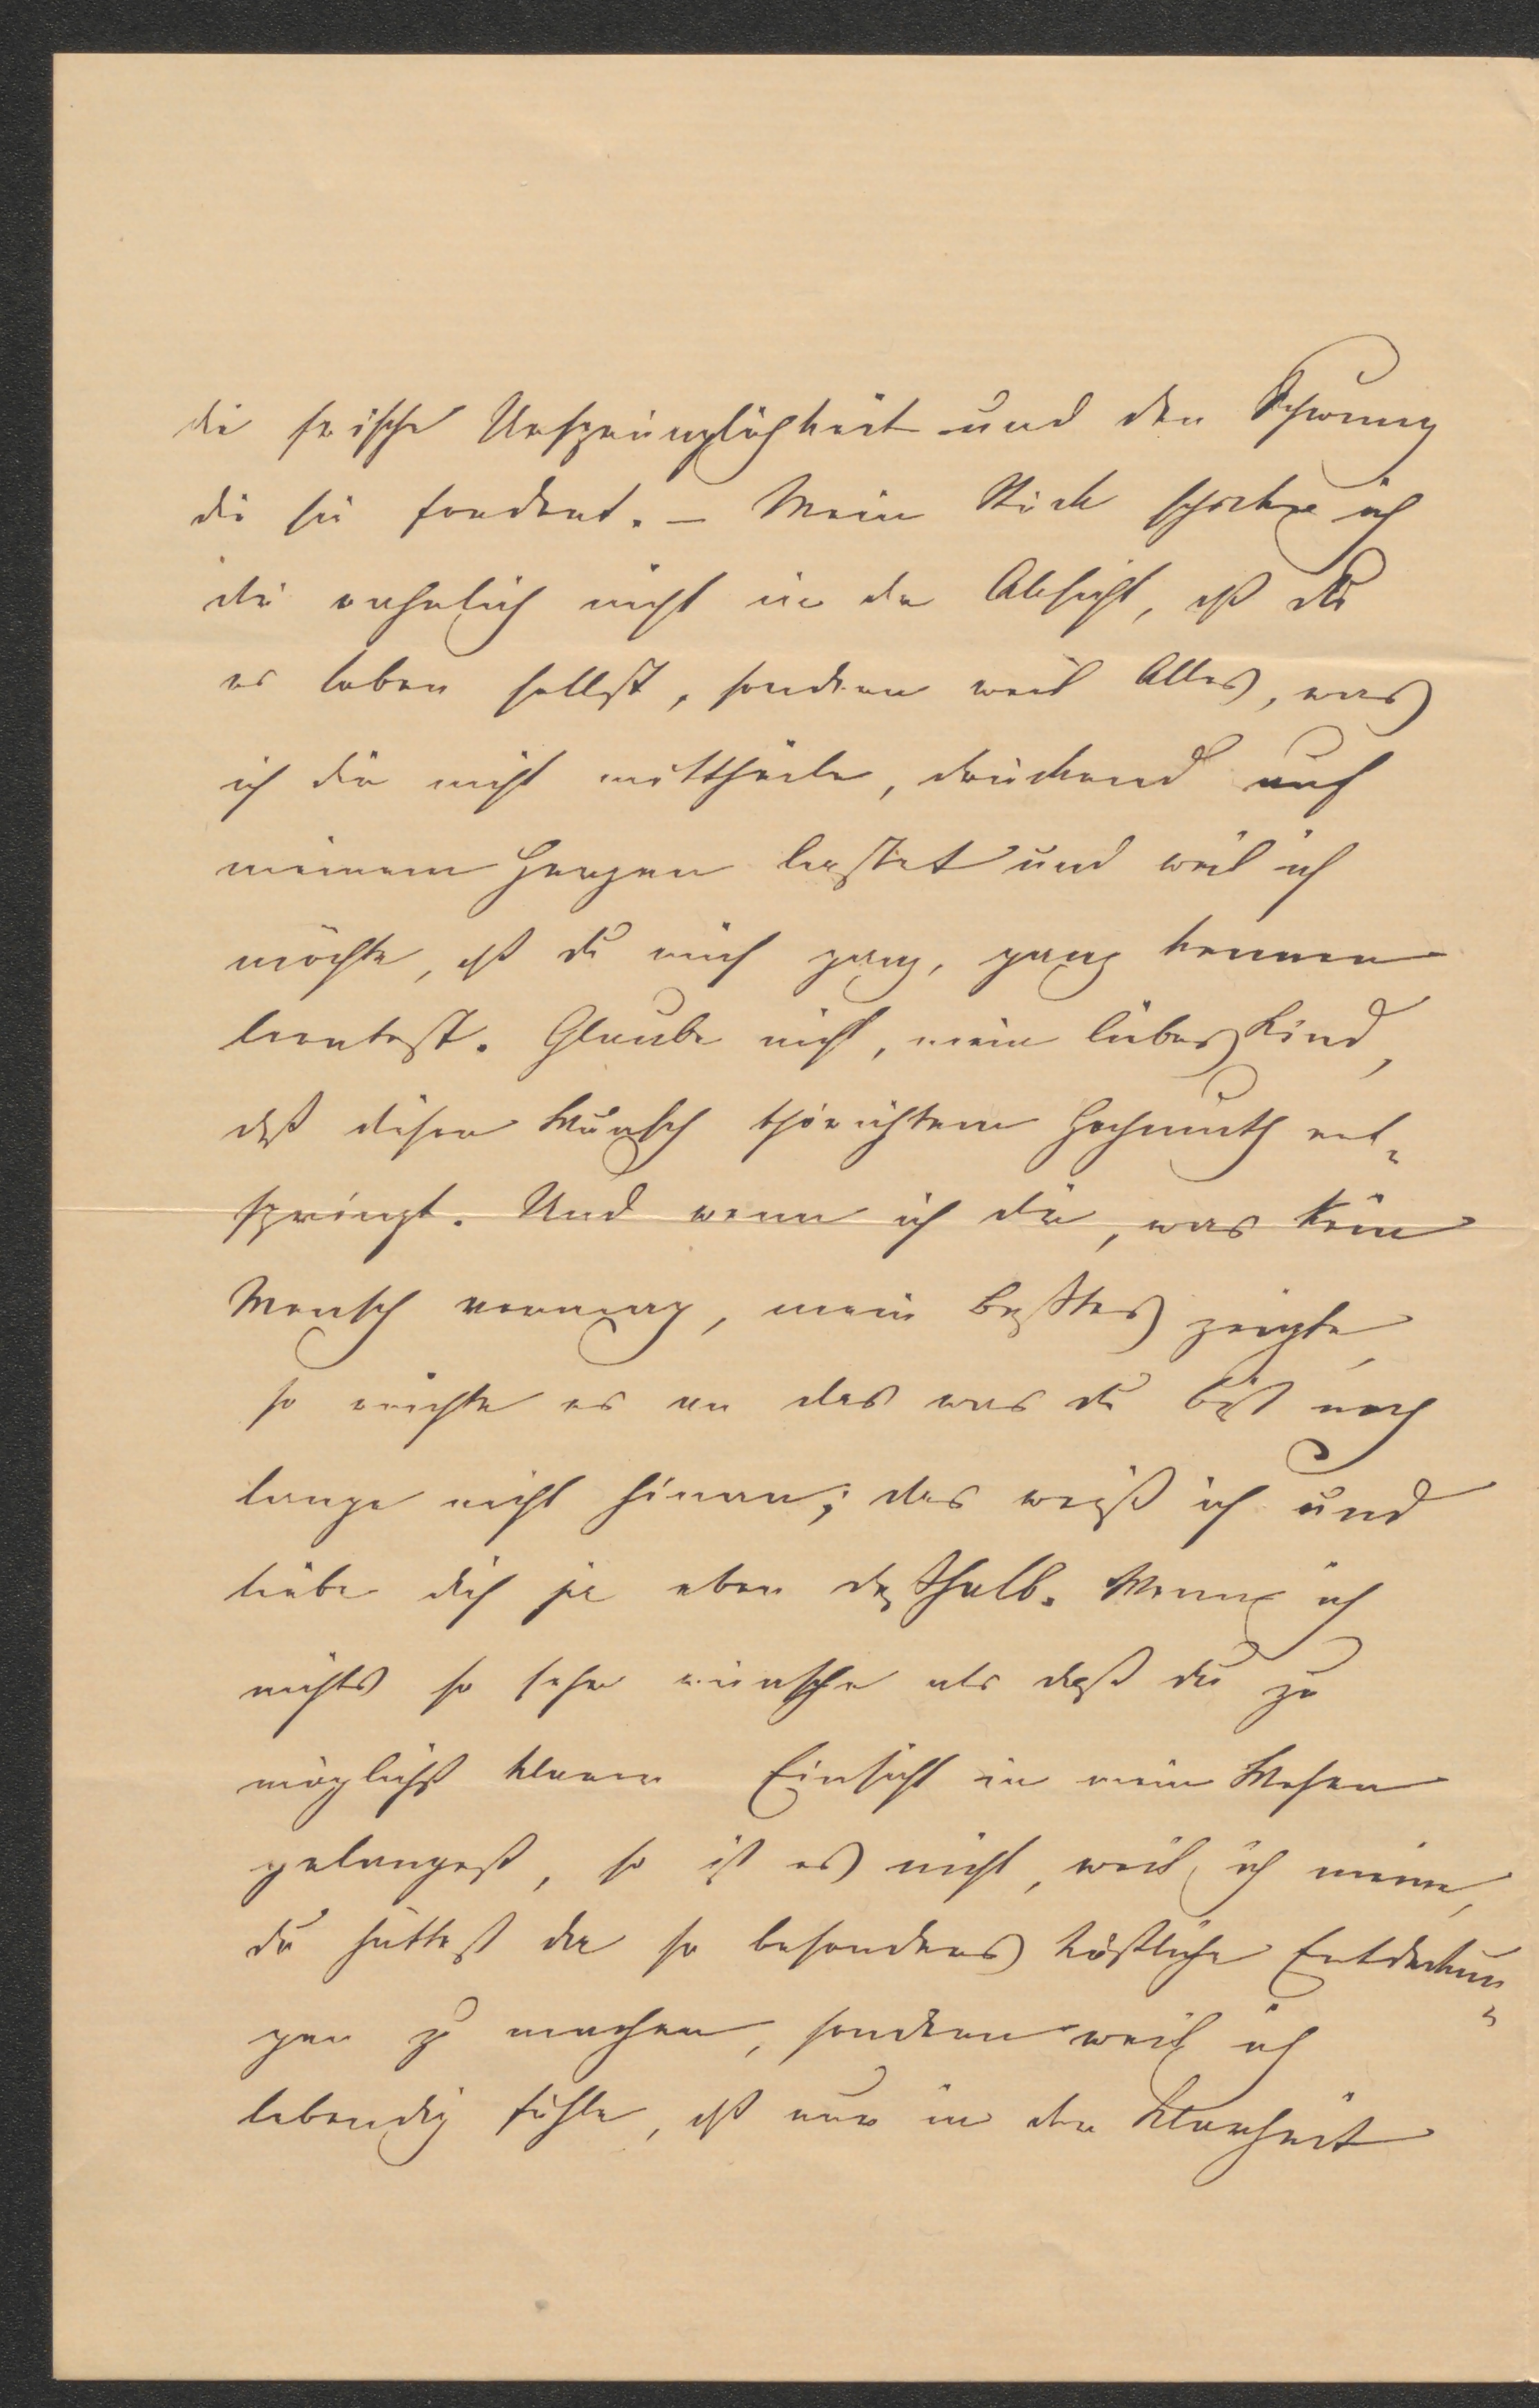 die frische Ursprünglichkeit und den Schwung
die sie fordert. – Mein Stück schicke ich
dir wahrlich nicht in der Absicht, daß du
es loben sollst, sondern weil Alles, was
ich dir nicht mittheile, drückend auf
meinem Herzen lastet und weil ich
möchte, daß du mich ganz, ganz kennen
lerntest. Glaube nicht, mein liebes Kind,
daß dieser Wunsch thörichtem Hochmuth ent-
springt. Und wenn ich dir, was kein
Mensch vermag, mein Bestes zeigte,
so reichte es an das was du bist noch
lange nicht hinan; das weiß ich und
liebe dich ja eben deßhalb. Wenn ich
nichts so sehr wünsche als daß du zu
möglichst klarer Einsicht in mein Wesen
gelangest, so ist es nicht, weil ich meine,
du hättest da so besonders köstliche Entdeckun-
gen zu machen, sondern weil ich
lebendig fühle, daß nur in der Klarheit